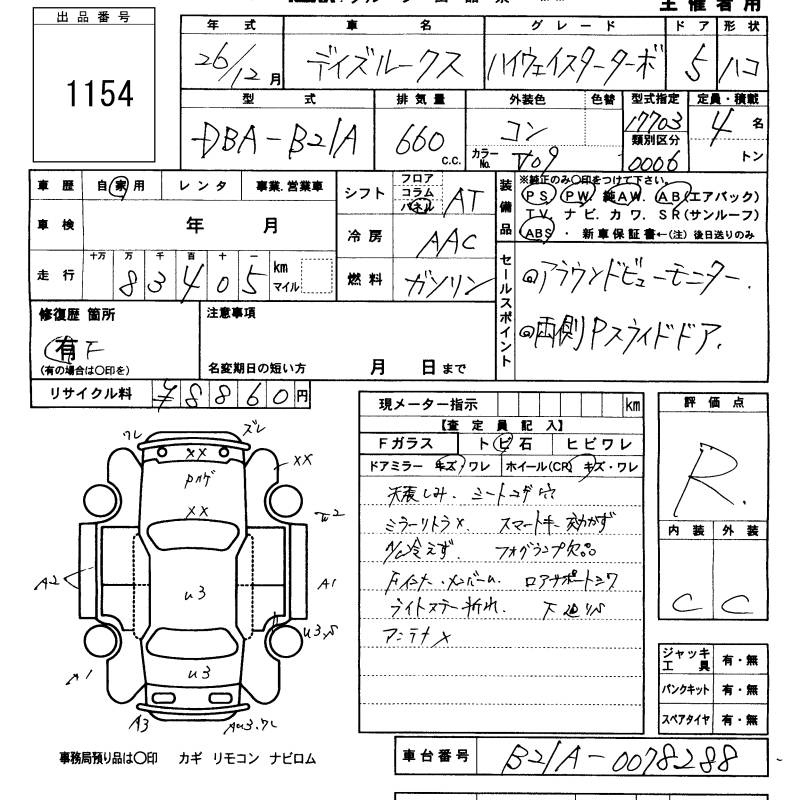 主催者用
出品番号
1154
年式 車名 グレード ドア 形状
26/12月 デイズルークス ハイウェイスターターボ 5 ハコ
型式 排気量 外装色 色替 型式指定 定員・積載
DBA-B21A 660 c.c. コン カラーNo. V09 17703 4 名
類別区分 0006 トン
車歴 自家用 レンタ 事業.営業車
車検 年 月
走行 十万 万 千 百 十 一
8 3 4 0 5 km マイル
シフト フロア コラム パネル AT
冷房 AAC
燃料 ガソリン
装備品 ※純正のみ〇印をつけて下さい。
PS. PW. 純AW. AB(エアバック)
TV. ナビ. カワ. SR(サンルーフ)
ABS ・ 新車保証書←(注)後日送りのみ
セールスポイント
◎アラウンドビューモニター.
◎両側Pスライドドア.
修復歴 箇所 注意事項
有 F
(有の場合は〇印を) 名変期日の短い方 月 日まで
リサイクル料 ¥8860円
現メーター指示 km
【査定員記入】
Fガラス トビ石 ヒビワレ
ドアミラー キズ/ワレ ホイール(CR) キズ・ワレ
天張しみ. シートコゲ穴
ミラーリトラ× スマートキー効かず
A/C冷えず. フォグランプ欠品
Fインナー・メンバーム. ロアサポートシワ
ライトステー折れ. 下廻りS
アンテナ×
評価点
R.
内装 外装
C C
ワレ ズレ
××
Pハゲ
××
××
A2
u3
A1
u3.S
A1
u3
A3
事務局預り品は〇印 カギ リモコン ナビロム
ジャッキ工具 有・無
パンクキット 有・無
スペアタイヤ 有・無
車台番号 B21A-0078288